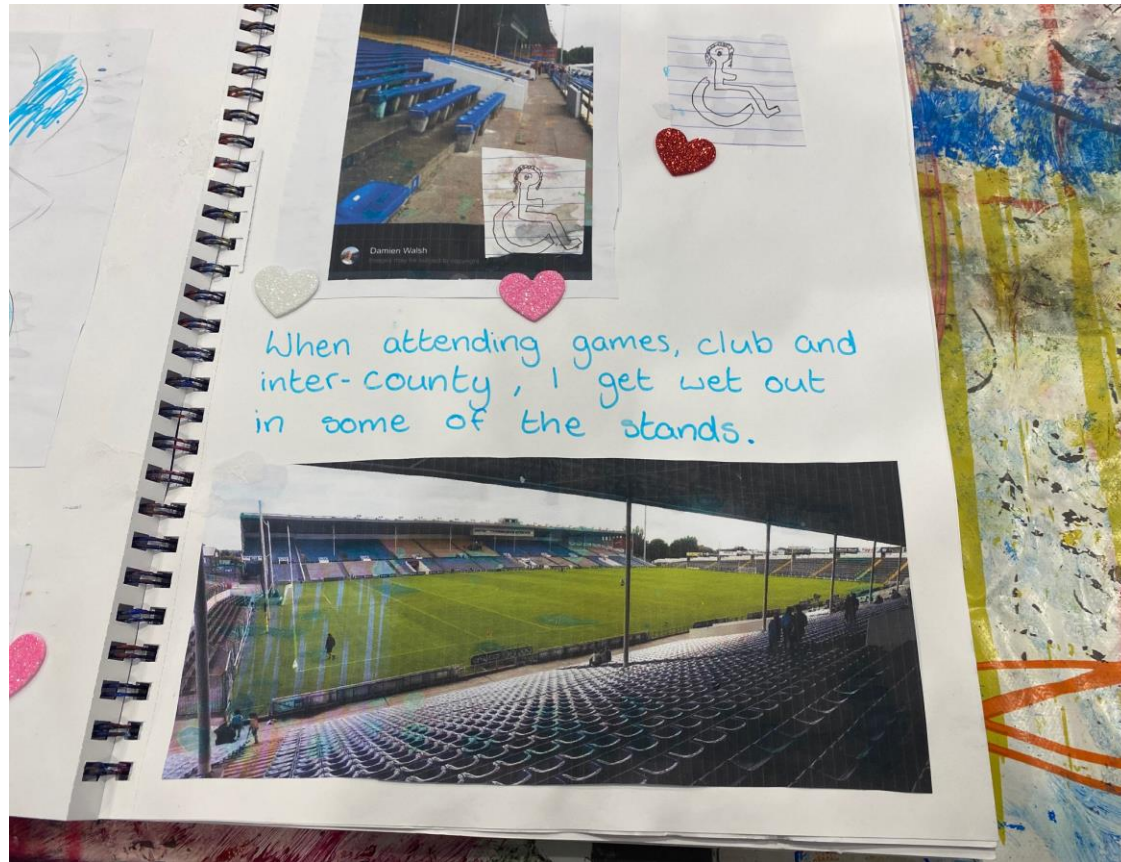 Damien Walsh
When attending games, club and
inter-county, I get wet out
in some of the stands.